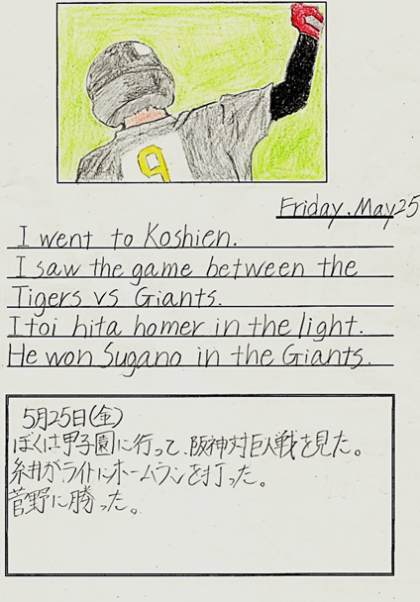 9
Friday. May 25
I went to Koshien.
I saw the game between the
Tigers vs Giants.
Itoi hita homer in the light.
He won Sugano in the Giants.
5月25日(金)
ぼくは甲子園に行って、阪神対巨人戦を見た。
糸井がライトにホームランを打った。
菅野に勝った。